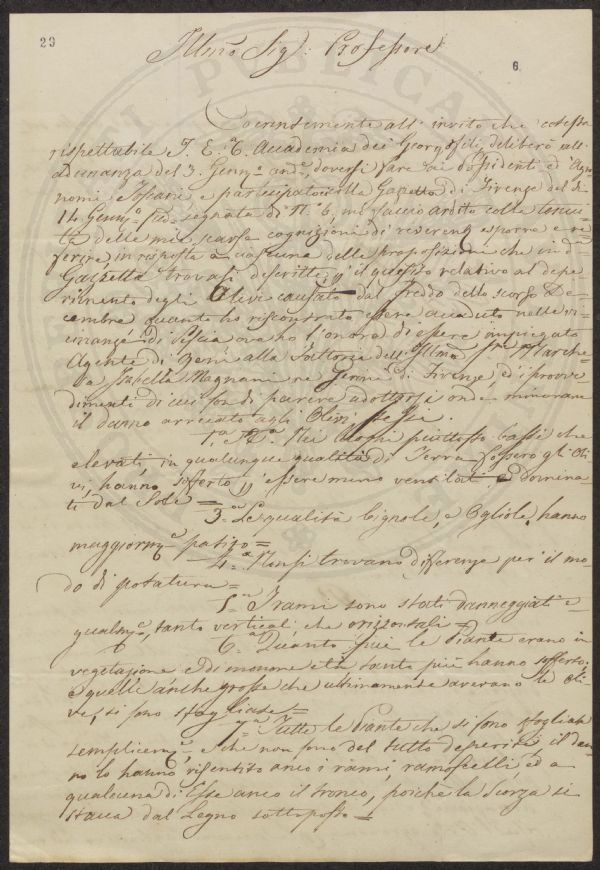 29
6
Illmo Sigr: Professore
Coerentemente all' invito che cotesta
rispettabile I. E. R. Accademia dei Georgofili deliberò nell'
Adunanza del 3. Genn.o and.o doversi fare ai Possidenti ed Agro
nomi Toscani e partecipato colla Gazzetta di Firenze del dì
14 Genn.o sud.o segnata di N.o 6, mi faccio ardito colla tenui
tà delle mie scarse cognizioni di riverent.e esporre e re
ferire in risposta a ciascuna delle proposizioni che in d.a
Gazzetta trovasi descritte p. il quesito relativo al depe
rimento degli Olivi causato dal freddo dello scorso De
cembre quanto ho riscontrato essere accaduto nelle vi
cinanze di Pescia ove ho l'onore di essere impiegato
Agente di Beni alla Fattoria dell' Illma Sra Marche
sa Isabella Magnani ne' Fermi di Firenze, ed i provve
dimenti di cui son di parere adottarsi onde minorare
il danno arrecato agli Olivi stessi.
1.a 2.a Nei Luoghi piuttosto bassi che
elevati in qualunque qualità di Terra posson gli Oli
vi, hanno sofferto, p. essere meno ventilati e domina
ti dal Sole =
3.a Le qualità Lignole, e Ogliole, hanno
maggiorm.e patito =
4.a Non si trovano differenze per il mo
do di potatura =
5.a I rami sono stati danneggiati e
qualm.e, tanto verticali che orizontali =
6.a Quanto più le Piante erano in
vegetazione e di minore età tanto più hanno sofferto;
e quelle anche grosse che ultimamente avevano le Oli
ve, si sono sfogliate =
7.a Tutte le Piante che si sono sfogliate
semplicem.e, e che non sono del tutto deperite, il dan
no lo hanno risentito anco i rami, ramoscelli, ed a
qualcuna di Esse anco il tronco, poiche la Scorza si
stacca dal Legno sottoposto =